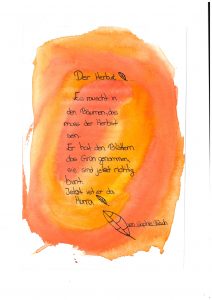 Der Herbst
Es rauscht in
den Bäumen, das
muss der Herbst
sein.
Er hat den Blättern
das Grün genommen,
sie sind jetzt richtig
bunt.
Jetzt ist er da
Hurra
von Sophie